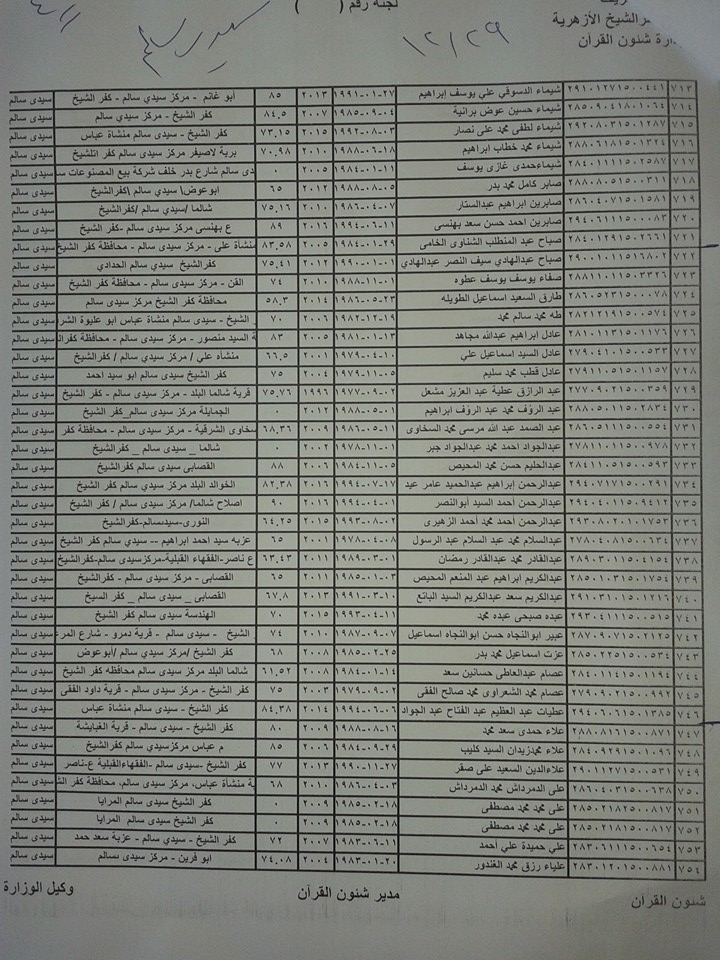 ـر الشيخ الأزهرية
دارة شئون القرآن
لجنة رقم ( )
١٢/٢٩
سيدي سالم
٧١٣ ٢٩١٠١٢٧١٥٠٠٤٤١ شيماء الدسوقي علي يوسف إبراهيم ١٩٩١-٠١-٢٧ ٢٠١٣ ٨٥ أبو غانم - مركز سيدي سالم - كفر الشيخ سيدى سالم
٧١٤ ٢٨٥٠٩٠٤١٨٠١٠٦٤ شيماء حسين عوض برانية ١٩٨٥-٠٩-٠٤ ٢٠٠٧ ٨٤,٥ كفر الشيخ - مركز سيدي سالم سيدى سالم
٧١٥ ٢٩٢٠٨٠٣١٥٠١٢٨٧ شيماء لطفى محمد على نصار ١٩٩٢-٠٨-٠٣ ٢٠١٥ ٧٣,١٥ كفر الشيخ - سيدى سالم منشاة عباس سيدى سالم
٧١٦ ٢٨٨٠٦١٨١٥٠١٣٢٤ شيماء محمد خطاب ابراهيم ١٩٨٨-٠٦-١٨ ٢٠١٠ ٧٠,٩٨ برية لاصيفر مركز سيدى سالم كفر اتلشيخ سيدى سالم
٧١٧ ٢٨٤٠١١١١٥٠٢٥٨٧ شيماءحمدى غازى يوسف ١٩٨٤-٠١-١١ ٢٠٠٥ ٠ دى سالم شارع بدر خلف شركة بيع المصنوعات سيدى سالم
٧١٨ ٢٨٨٠٨٠٥١٥٠٠٣١١ صابر كامل محمد بدر ١٩٨٨-٠٨-٠٥ ٢٠١٢ ٦٥ ابوعوض\ سيدي سالم \كفرالشيخ سيدى سالم
٧١٩ ٢٨٦٠٤٠٧١٥٠١٥٨١ صابرين ابراهيم عبدالستار ١٩٨٦-٠٤-٠٧ ٢٠١٠ ٧٥,١٦ شالما /سيدي سالم /كفرالشيخ سيدى سالم
٧٢٠ ٢٩٤٠٦١١١٥٠٠٠٨٣ صابرين احمد حسن سعد بهنسى ١٩٩٤-٠٦-١١ ٢٠١٦ ٨٩ ع بهنسى مركز سيدى سالم -كفر الشيخ سيدى سالم
٧٢١ ٢٨٤٠١٢٩١٥٠٢٦٦١ صباح عبد المنطلب الشناوى الخامى ١٩٨٤-٠١-٢٩ ٢٠٠٥ ٨٣,٥٨ منشأة على - مركز سيدى سالم - محافظة كفر الشيخ سيدى سالم
٧٢٢ ٢٩٠٠١٠١١٥١٦٨٠٢ صباح عبدالهادي سيف النصر عبدالهادي ١٩٩٠-٠١-٠١ ٢٠١٢ ٧٥,٤١ كفرالشيخ سيدي سالم الحدادي سيدى سالم
٧٢٣ ٢٨٨١١٠١١٥٠٣٣٢٦ صفاء يوسف يوسف عطوه ١٩٨٨-١١-٠١ ٢٠١٠ ٧٤ القن - مركز سيدى سالم - محافظة كفر الشيخ سيدى سالم
٧٢٤ ٢٨٦٠٥٢٣١٥٠٠٠٧٨ طارق السعيد اسماعيل الطويله ١٩٨٦-٠٥-٢٣ ٢٠١٤ ٥٨,٣ محافظة كفر الشيخ مركز سيدى سالم سيدى سالم
٧٢٥ ٢٨٢١٢١٩١٥٠٠٥٧٤ طه محمد سالم محمد ١٩٨٢-١٢-١٩ ٢٠٠٦ ٧٠ الشيخ - سيدى سالم منشاة عباس ابو عليوة الشر سيدى سالم
٧٢٦ ٢٨١٠١١٣١٥٠١١٧٦ عادل ابراهيم عبدالله مجاهد ١٩٨١-٠١-١٣ ٢٠٠٥ ٨٣ ة السيد منصور - مركز سيدى سالم - محافظة كفرال سيدى سالم
٧٢٧ ٢٧٩٠٤١٠١٥٠٠٥٣٣ عادل السيد اسماعيل علي ١٩٧٩-٠٤-١٠ ٢٠٠١ ٦٦,٥ منشأه علي / مركز سيدي سالم / كفرالشيخ سيدى سالم
٧٢٨ ٢٧٩١١٠٥١٥٠١١٥٧ عادل قطب محمد سليم ١٩٧٩-١١-٠٥ ٢٠٠٤ ٧٥ كفر الشيخ سيدى سالم ابو سيد احمد سيدى سالم
٧٢٩ ٢٧٧٠٩٠٢١٥٠٠٣٥٩ عبد الرازق عطية عبد العزيز مشعل ١٩٧٧-٠٩-٠٢ ١٩٩٦ ٧٥,٧٦ قرية شالما البلد - مركز سيدى سالم - كفر الشيخ سيدى سالم
٧٣٠ ٢٨٨٠٥٠١١٥٠٢٨٣٤ عبد الروف محمد عبد الروف ابراهيم ١٩٨٨-٠٥-٠١ ٢٠١٢ ٠ الجمايلة مركز سيدى سالم_كفر الشيخ سيدى سالم
٧٣١ ٢٨٦٠٥١١١٥٠٠٥٥٤ عبد الصمد عبد الله مرسى محمد السخاوى ١٩٨٦-٠٥-١١ ٢٠٠٩ ٦٨,٣٦ سخاوى الشرقية - مركز سيدى سالم - محافظة كفر سيدى سالم
٧٣٢ ٢٧٨١١٠١١٥٠٠٩٧٨ عبدالجواد احمد محمد عبدالجواد جبر ١٩٧٨-١١-٠١ ٢٠٠٢ ٠ شالما _ سيدى سالم _ كفرالشيخ سيدى سالم
٧٣٣ ٢٨٤١١٠٥١٥٠٠٥٩٣ عبدالحليم حسن محمد المحيص ١٩٨٤-١١-٠٥ ٢٠٠٦ ٨٨ القصابى سيدى سالم كفرالشيخ سيدى سالم
٧٣٤ ٢٩٤٠٧١٧١٥٠٠٢٩١ عبدالرحمن إبراهيم عبدالحميد عامر عبد ١٩٩٤-٠٧-١٧ ٢٠١٦ ٨٢,٣٨ الخوالد البلد مركز سيدي سالم كفر الشيخ سيدى سالم
٧٣٥ ٢٩٤٠٤٠١١٥٠٩٤١٢ عبدالرحمن أحمد السيد أبوالنصر ١٩٩٤-٠٤-٠١ ٢٠١٦ ٩٠ اصلاح شالما/ مركز سيدي سالم / كفر الشيخ سيدى سالم
٧٣٦ ٢٩٣٠٨٠٢٠١٠١٧٥٣ عبدالرحمن أحمد محمد أحمد الزهيرى ١٩٩٣-٠٨-٠٢ ٢٠١٥ ٦٤,٢٥ النورى-سيدسالم-كفرالشيخ سيدى سالم
٧٣٧ ٢٧٨٠٤٠٨١٥٠٠٦٣٤ عبدالسلام محمد عبد السلام عبد الرسول ١٩٧٨-٠٤-٠٨ ٢٠٠١ ٦٥ عزبه سيد احمد ابراهيم -- سيدي سالم كفر الشيخ سيدى سالم
٧٣٨ ٢٨٩٠٣٠١١٥٠٤١٥٤ عبدالقادر محمد عبدالقادر رمضان ١٩٨٩-٠٣-٠١ ٢٠١١ ٦٣,٤٣ ع ناصر-الفقهاء القبلية-مركزسيدى سالم-كفرالشيخ سيدى سالم
٧٣٩ ٢٨٥٠١٠٣١٥٠١٧٥٤ عبدالكريم ابراهيم عبد المنعم المحيص ١٩٨٥-٠١-٠٣ ٢٠١١ ٦٥ القصابى - مركز سيدى سالم - كفرالشيخ سيدى سالم
٧٤٠ ٢٩١٠٣١٠١٥٠١٢١٦ عبدالكريم سعد عبدالكريم السيد البائع ١٩٩١-٠٣-١٠ ٢٠١٣ ٦٧,٨ القصابى _ سيدى سالم _ كفر السيخ سيدى سالم
٧٤١ ٢٩٣٠٤١١١٥٠٠٥١٥ عبده صبحى عبده محمد ١٩٩٣-٠٤-١١ ٢٠١٥ ٧٠ الهندسة سيدى سالم كفر الشيخ سيدى سالم
٧٤٢ ٢٨٧٠٩٠٧١٥٠٢١٢٥ عبير ابوالنجاه حسن ابوالنجاه اسماعيل ١٩٨٧-٠٩-٠٧ ٢٠١٠ ٧٤ الشيخ - سيدى سالم - قرية دمرو - شارع المرع سيدى سالم
٧٤٣ ٢٨٥٠٢٢٥١٥٠٠٥٣٤ عزت اسماعيل محمد بدر ١٩٨٥-٠٢-٢٥ ٢٠٠٨ ٦٨ كفر الشيخ /مركز سيدي سالم /أبوعوض سيدى سالم
٧٤٤ ٢٨٤٠١١٤١٥٠١١٩٤ عصام عبدالعاطى حسانين سعد ١٩٨٤-٠١-١٤ ٢٠٠٨ ٦١,٥٢ شالما البلد مركز سيدى سالم محافظه كفر الشيخ سيدى سالم
٧٤٥ ٢٧٩٠٩٠٢١٥٠٠٩٩٢ عصام محمد الشعراوى محمد صالح الفقى ١٩٧٩-٠٩-٠٢ ٢٠٠٣ ٧٥ كفر الشيخ - مركز سيدى سالم - قرية داود الفقى سيدى سالم
٧٤٦ ٢٩٤٠٦٠٦١٥٠١٣٨٥ عطيات عبد العظيم عبد الفتاح عبد الجواد ١٩٩٤-٠٦-٠٦ ٢٠١٤ ٨٤,٣٨ كفر الشيخ - سيدى سالم منشاة عباس سيدى سالم
٧٤٧ ٢٨٨٠٨١٦١٥٠٠٨٧١ علاء حمدى سعد محمد ١٩٨٨-٠٨-١٦ ٢٠٠٩ ٨٠ كفر الشيخ - سيدى سالم - قرية الغبايشة سيدى سالم
٧٤٨ ٢٨٤٠٩٢٩١٥٠١٠٩٦ علاء محمدزيدان السيد كليب ١٩٨٤-٠٩-٢٩ ٢٠٠٦ ٨٥ م عباس مركزسيدي سالم كفرالشيخ سيدى سالم
٧٤٩ ٢٩٠١١٢٧١٥٠٠٥٣١ علاءالدين السعيد على صقر ١٩٩٠-١١-٢٧ ٢٠١٣ ٧٧ كفر الشيخ -سيدى سالم -الفقهاءالقبلية ع-ناصر سيدى سالم
٧٥٠ ٢٨٦٠٤٠٣١٥٠٠٦٣٨ على الدمرداش محمد الدمرداش ١٩٨٦-٠٤-٠٣ ٢٠١٠ ٦٨ ة منشأة عباس، مركز سيدى سالم، محافظة كفر الش سيدى سالم
٧٥١ ٢٨٥٠٢١٨٢٥٠٠٨١٧ على محمد محمد مصطفى ١٩٨٥-٠٢-١٨ ٢٠٠٩ ٠ كفر الشيخ سيدى سالم المرايا سيدى سالم
٧٥٢ ٢٨٥٠٢١٨٢٥٠٠٨١٧ على محمد محمد مصطفى ١٩٨٥-٠٢-١٨ ٢٠٠٩ ٠ كفر الشيخ سيدى سالم المرايا سيدى سالم
٧٥٣ ٢٨٣٠٦١١١٥٠٠٦٥٤ علي حميدة علي أحمد ١٩٨٣-٠٦-١١ ٢٠٠٧ ٧٢ كفر الشيخ - سيدي سالم - عزبة سعد حمد سيدى سالم
٧٥٤ ٢٨٣٠١٢٠١٥٠٠٨٨١ علياء رزق محمد الغندور ١٩٨٣-٠١-٢٠ ٢٠٠٤ ٧٤,٠٨ ابو فرين - مركز سيدى سالم سيدى سالم
شئون القرآن مدير شئون القرآن وكيل الوزارة